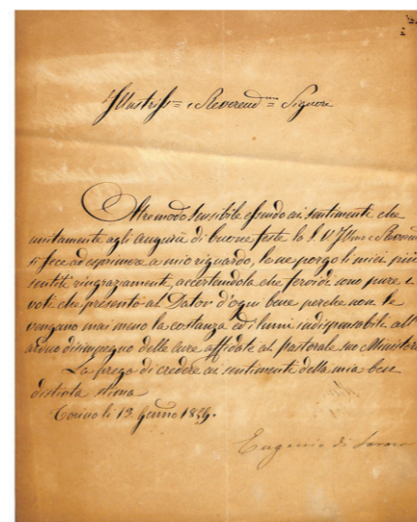 Illustris.= e Reverend.= Signore
Oltremodo sensibile essendo ai sentimenti che
unitamente agli auguri di buone feste la S. V. Illma e Reverend
si fece ad esprimere a mio riguardo, le ne porgo li miei più
sentiti ringraziamenti, accertandola che fervidi sono pure i
voti che presento al Dator d'ogni bene perchè non le
vengano mai meno la costanza ed i lumi indispensabili all'
arduo disimpegno delle cure affidate al pastorale suo Ministero
La prego di credere ai sentimenti della mia ben
distinta stima
Torino li 13 Genno
Eugenio di Savoia